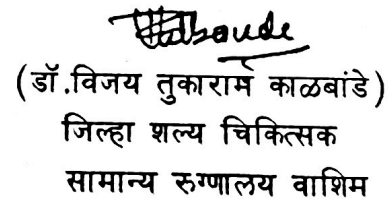 (डॉ.विजय तुकाराम काळबांडे)
जिल्हा शल्य चिकित्सक
सामान्य रुग्णालय वाशिम